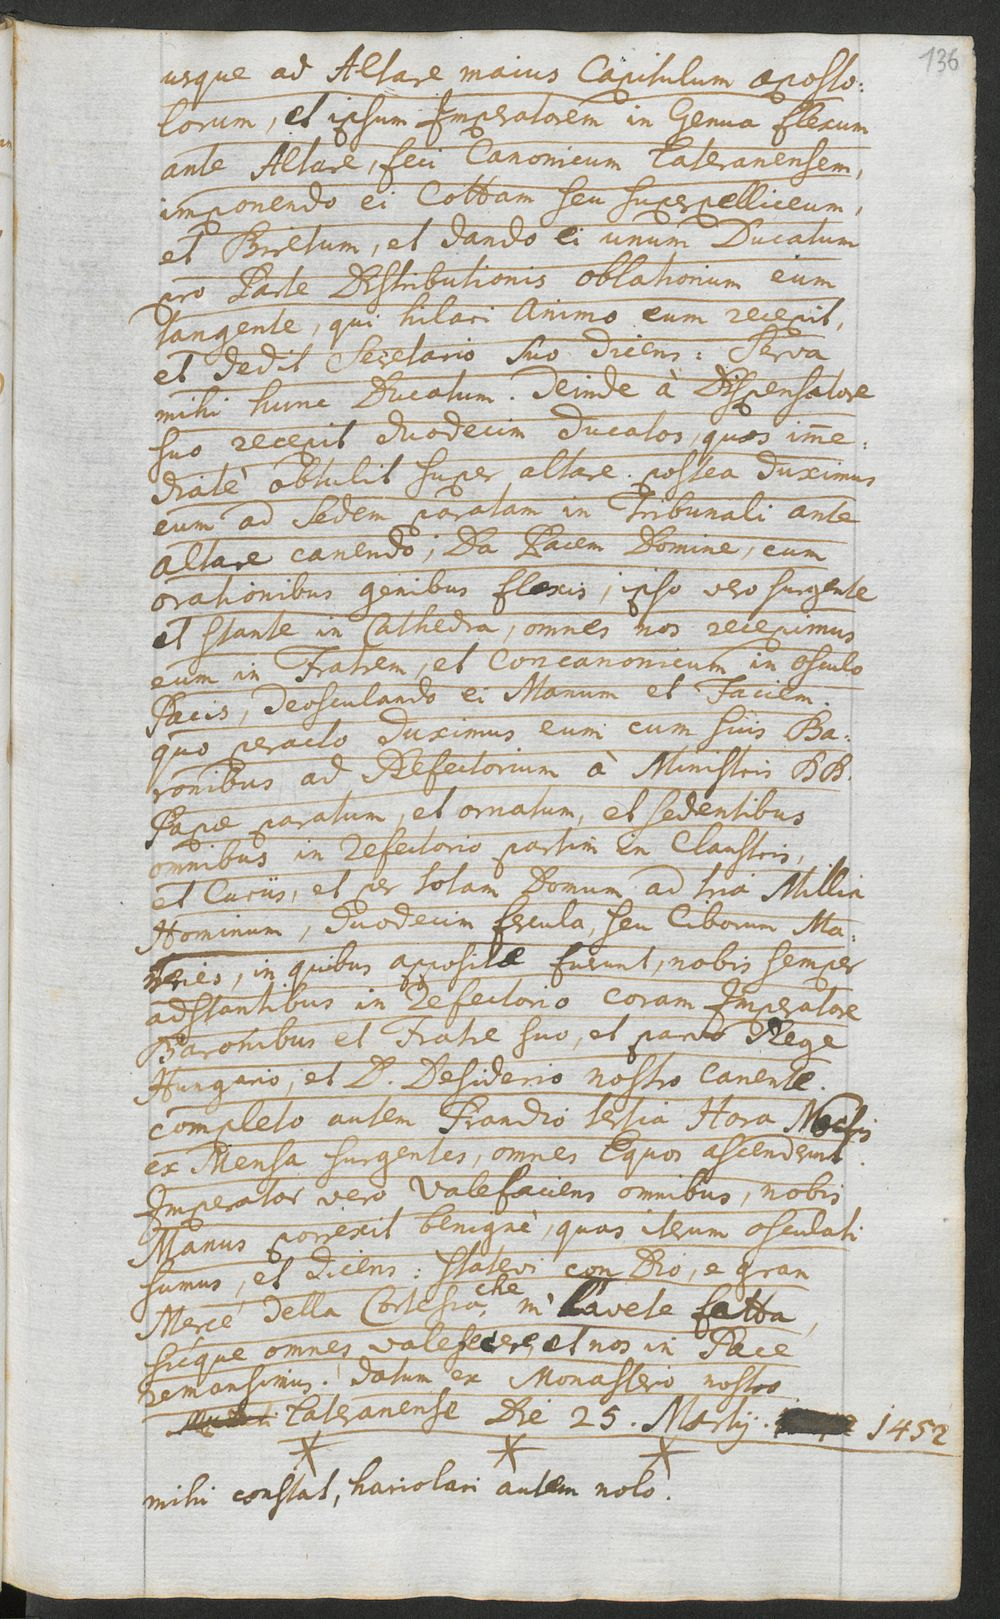 136
usque ad Altare maius Capitulum aposto:
lorum, et ipsum Imperatorem in Genua flexum
ante Altare, feci Canonicum Lateranensem,
imponendo ei Cottam seu superpelliceum,
et Biretum, et dando ei unum Ducatum
pro Parte Distributionis oblationum eum
tangente, qui hilari Animo eum recepit,
et dedit Secretario suo dicens: Serva
mihi hunc Ducatum. Deinde à Dispensatore
suo recepit duodecim Ducatos, quos im̄e:
diatè obtulit super altare. postea duximus
eum ad Sedem paratam in Tribunali ante
altare canendo; Da Pacem Domine, cum
orationibus genibus flexis, ipso vero surgente
et stante in Cathedra, omnes nos recepimus
eum in Fratrem, et Concanonicum in osculo
Pacis, deosculando ei Manum et Faciem.
quo peracto duximus eum cum suis Ba:
ronibus ad Refectorium à Ministris BB.
Papæ paratum, et ornatum, et sedentibus
omnibus in refectorio partim in Claustris,
et Curiis, et per totam Domum ad tria Millia
Hominum, duodecim fercula, seu Ciborum Ma:
teries, in quibus appositæ fuerunt, nobis semper
adstantibus in Refectorio coram Imperatore
Baronibus et Fratre suo, et parvo Rege
Hungario, et D. Desiderio nostro canente.
completo autem Prandio tertia Hora Noctis
ex Mensa surgentes, omnes Equos ascenderunt.
Imperator vero valefaciens omnibus, nobis
Manus porrexit benignè, quas iterum osculati
sumus, et dicens: statevi con Dio, e gran
Mercè della Cortesia, che m' l'avete fatta,
sicque omnes valefecere, et nos in Pace
remansimus. datum ex Monasterio nostro
Lateranense Die 25. Martij. 1452
mihi constat, hariolari autem nolo.